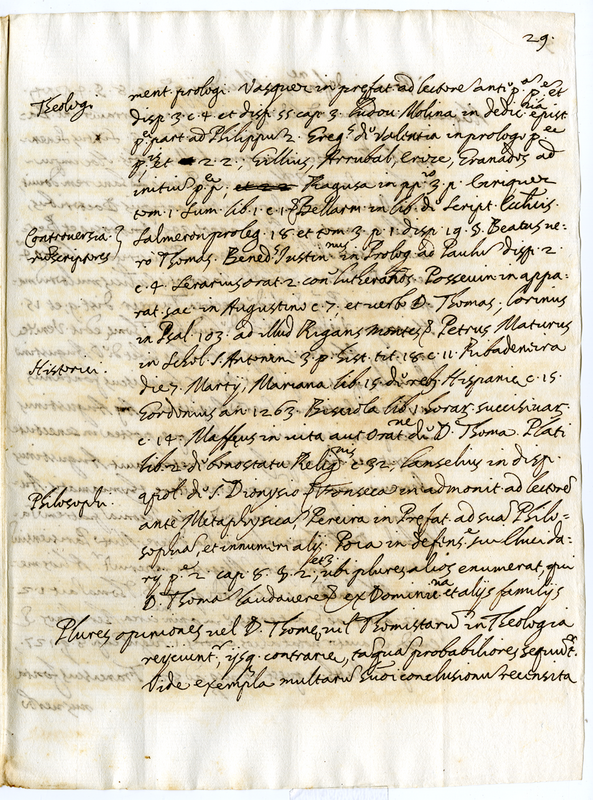 29.
Theologi
ment. prologi. Vasquez in prefat. ad lectorē antĕ pᵃ pᵉ et
disp. 3. c. 4. et disp. 35 cap. 3. Ludou. Molina in dedic. epist
pᵉ part. ad Philippū 2. Greg. dĕ Valentia in prologo
et 2. 2; Gillius, Arrubal, Granados ad
initiū pᵉ p., Ragusa in 3. p. Enriquez
tom. 1. sum. lib. 1. c. 1. Bellarm. in lib. dĕ Script. Eccles.
Controversia
rū scriptores
Salmeron proleg. 18. et tom. 3. p. 1. disp. 19. S. Beatus ue-
ro Thomas. Bened. Iustinⁿᵘˢ in Prolog. ad Paulū disp. 2.
c. 4. Serarius orat. 2. con. Lutheranos. Posseuin. in appa-
rat. sac. in Augustino c. 7, et uerbo D. Thomas; Lorinus
in Psal. 103. ad illud Rigans montes. Petrus Maturus
Historici.
in Schol. S. Antonini 3. p. hist. tit. 18. c. 11. Ribadeneira
die 7. Martij, Mariana lib. 13. dĕ reb. Hispanie c. 15
Gordonus an. 1263. Bisciola lib. 1. horar. succisiuar.
c. 14. Maffeus in uita aut Oratⁿᵉ dĕ D. Thoma. Plati
lib. 2. dĕ bono statu Relig. c. 32. Lanselius in disp.
Philosophi.
apol. dĕ S. Dionysio Fonseca in admonit. ad lectorē
antĕ Metaphysicā, Pereira in Prefat. ad suā Philo-
sophiā, et innumeri alij. Poza in defens.ᵉ sui Elucida-
rij pᵉ 2. cap. 8. 3. 2, ubi plures alios enumerat, qui
D. Thomā laudauerē ex Dominiⁿᵃ et alijs familijs
Plures opiniones uel D. Thome, uel Thomistarū in Theologia
reijciunt, ijsq. contrarie, tāquā probabiliores sequūt.
Vide exempla multarū suoi conclusionū recensita